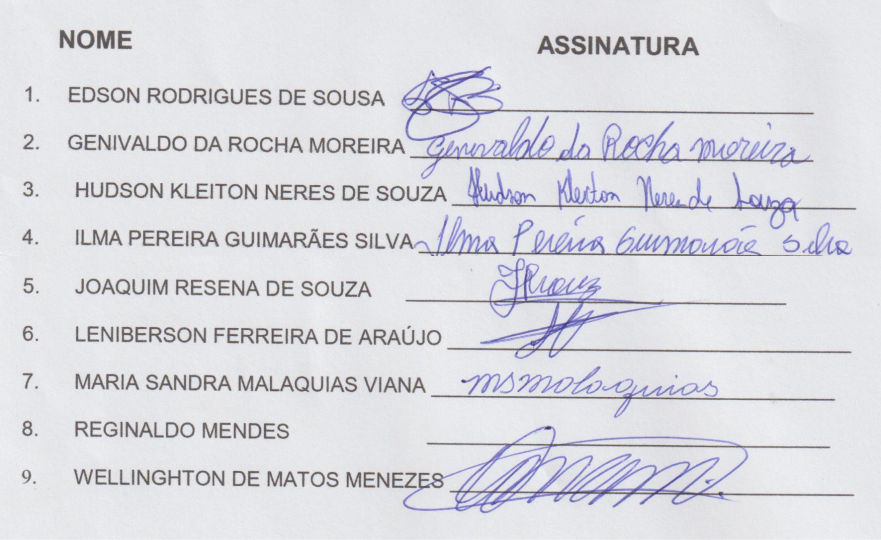 NOME ASSINATURA
1. EDSON RODRIGUES DE SOUSA
2. GENIVALDO DA ROCHA MOREIRA Genivaldo da Rocha moreira
3. HUDSON KLEITON NERES DE SOUZA Hudson Kleiton Neres de Souza
4. ILMA PEREIRA GUIMARÃES SILVA Ilma Pereira Guimarães Silva
5. JOAQUIM RESENA DE SOUZA
6. LENIBERSON FERREIRA DE ARAÚJO
7. MARIA SANDRA MALAQUIAS VIANA msmalaquias
8. REGINALDO MENDES
9. WELLINGHTON DE MATOS MENEZES